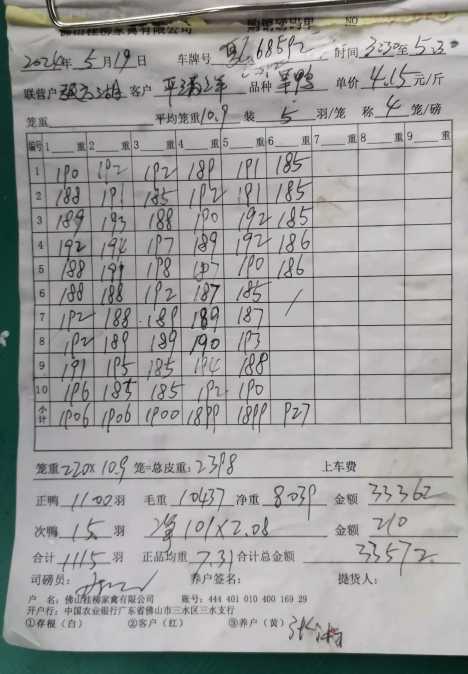 佛山桂柳家禽有限公司 NO
2024年 5月19日 车牌号 时间 3:30至5:30
联营户 客户 品种 单价 4.15 元/斤
笼重 平均笼重 10.9 装 5 羽/笼 称 4 笼/磅
编号 1 重 2 重 3 重 4 重 5 重 6 重 7 重 8 重 9 重
1 190 192 192 189 191 185
2 188 191 185 192 191 185
3 189 193 188 190 192 185
4 192 194 197 189 192 186
5 188 191 198 187 190 186
6 188 188 192 187 185 /
7 192 188 189 189 187
8 192 189 189 190 193
9 191 195 185 194 188
10 196 185 185 192 190
小计 1906 1906 1900 1899 1899 927
笼重 220×10.9 笼=总皮重: 2398 上车费
正鸭 1100 羽 毛重 10437 净重 8039 金额 33362
次鸭 15 羽 101×2.08 金额 210
合计 1115 羽 正品均重 7.31 合计总金额 33572
司磅员: 养户签名: 提货人:
户 名: 佛山桂柳家禽有限公司 账号: 444 401 010 400 169 29
开户行: 中国农业银行广东省佛山市三水区三水支行
①存根(白) ②客户(红) ③养户(黄)